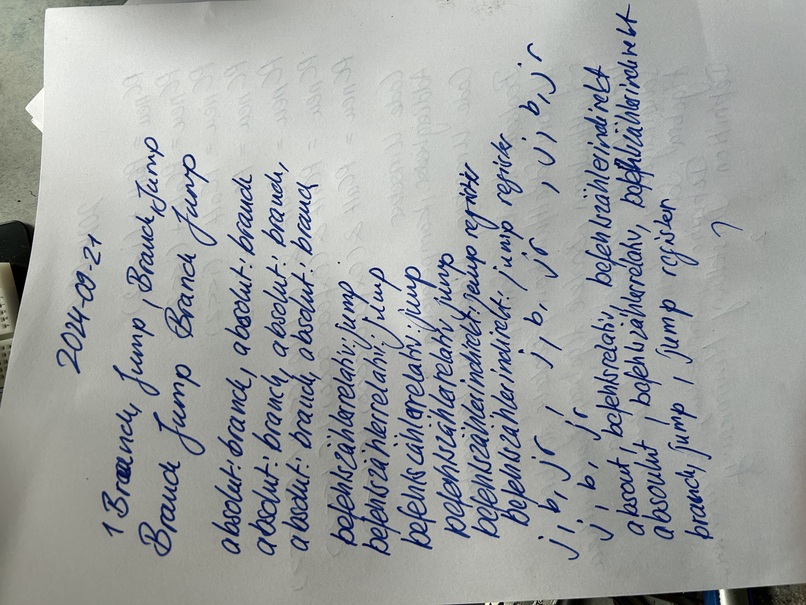 2024-09-21
1 Braanch, Jump, Branch, Jump
Branch Jump Branch Jump
absolut: branch, absolut: branch
absolut: branch, absolut: branch,
absolut: branch, absolut: branch
befehlszählerrelativ: jump
befehlszählerrelativ: jump
befehlszählerrelativ: jump
befehlszählerrelativ jump
befehlszählerindirekt: jump register
befehlszählerindirekt: jump register
j, b, jr , j, b, jr , j, b, jr
j, b, jr
absout, befehlsrelativ, befehlszählerindirekt
absoulut, befehlszählerrelativ, befehlszählerindirekt
branch, jump, jump register
?